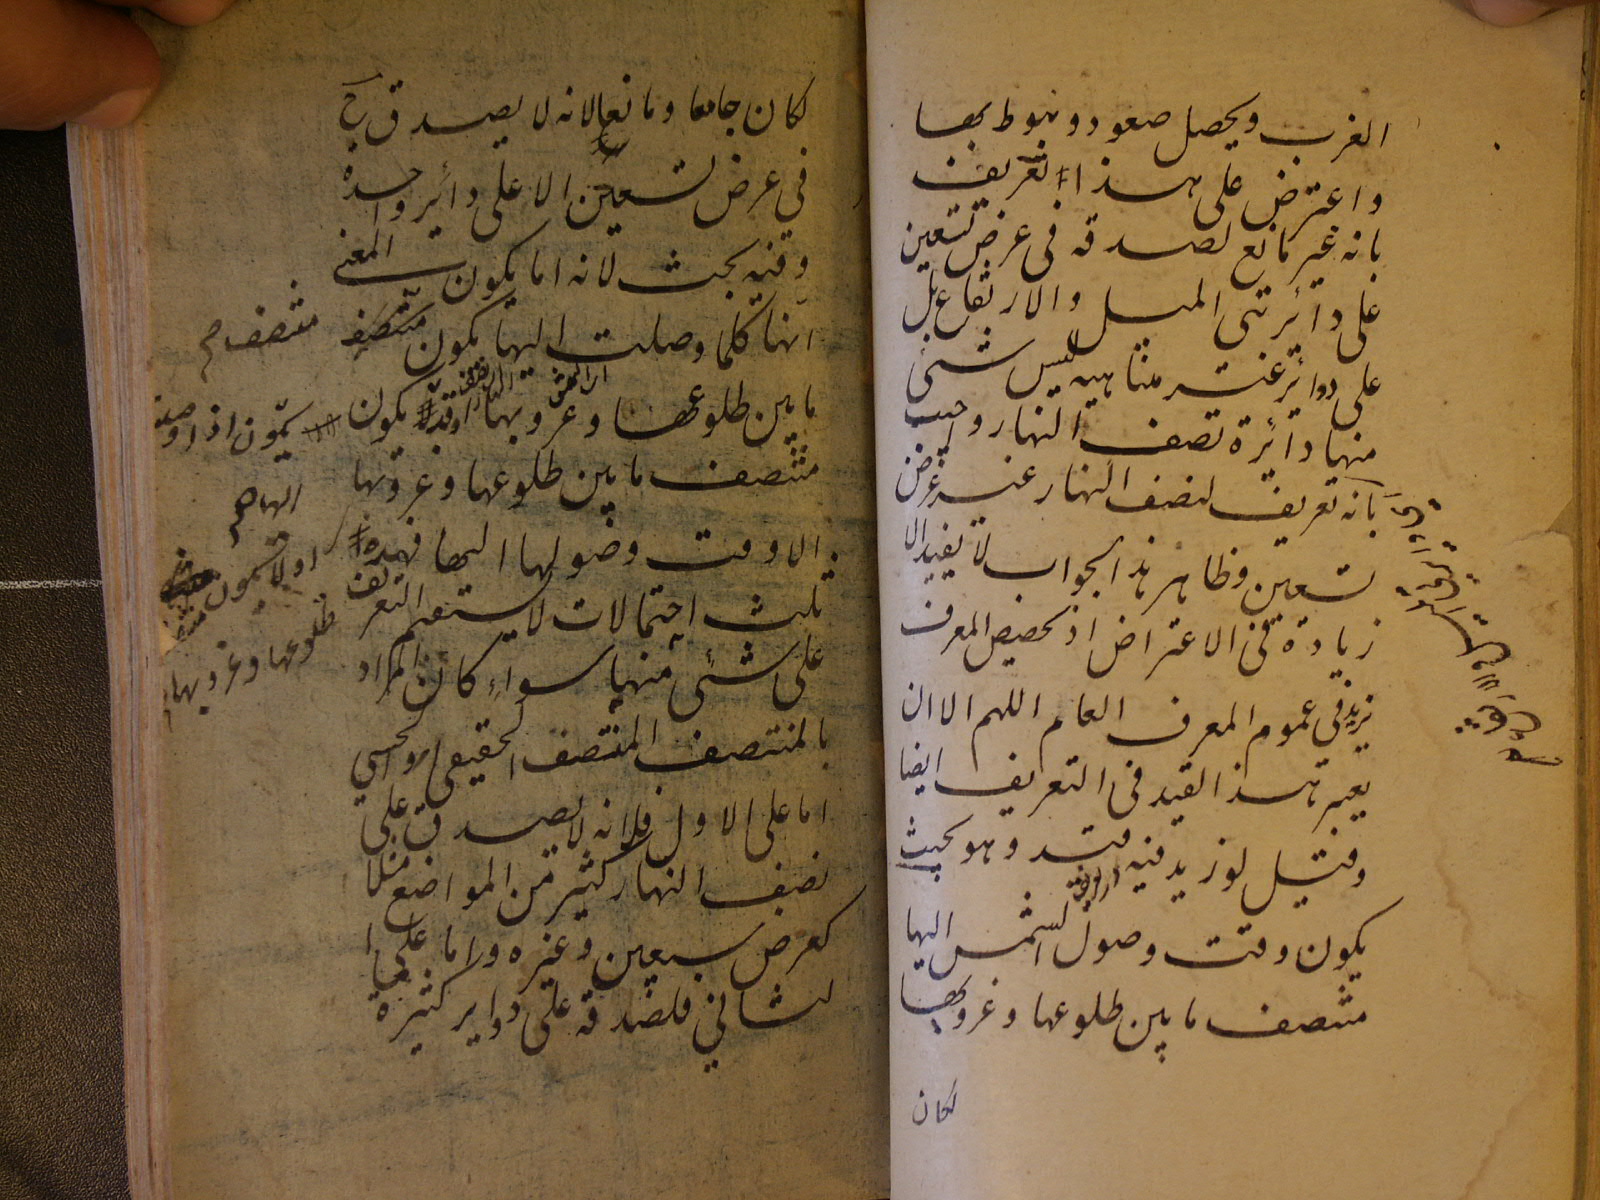 الغرب ويحصل صعود وهبوط بها
واعترض على هذا التعريف
بانه غير مانع لصدقه فى عرض تسعين
على دائرتى الميل والارتفاع بل
على دوائر غير متناهيه ليس شئ
منها دائرة نصف النهار واجيب
بانه تعريف لنصف النهار عند عرض
تسعين وظاهر هذا الجواب لا يفيد الا
زيادة فى الاعتراض اذ تخصيص المعرف
يزيد فى عموم المعرف العام اللهم الا ان
يعبر هذا القيد فى التعريف ايضا
وقيل لو زيد فيه قيد وهو بحيث
يكون وقت وصول الشمس اليها
منتصف ما بين طلوعها وغروبها
لكان
لكان جامعا ومانعا لانه لا يصدق ح
في عرض تسعين الا على دائرة واحدة
وفيه بحث لانه اما يكون المعنى
انها كلما وصلت اليها يكون منتصف
ما بين طلوعها وغروبها او قد يكون
منتصف ما بين طلوعها وغروبها
الا وقت وصولها اليها فهذه
ثلث احتمالات لا يستقيم التعريف
على شئ منها سواء كان المراد
بالمنتصف المنتصف الحقيقى او الحسي
اما على الاول فلانه لا يصدق على
نصف النهار كثير من المواضع مثلا
كعرض سبعين وغيره واما على ا
لثاني فلصدقه على دواير كثيرة
منتصف م
يكون اذا وصلت
اليها م
او لا يكون
طلوعها وغروبها